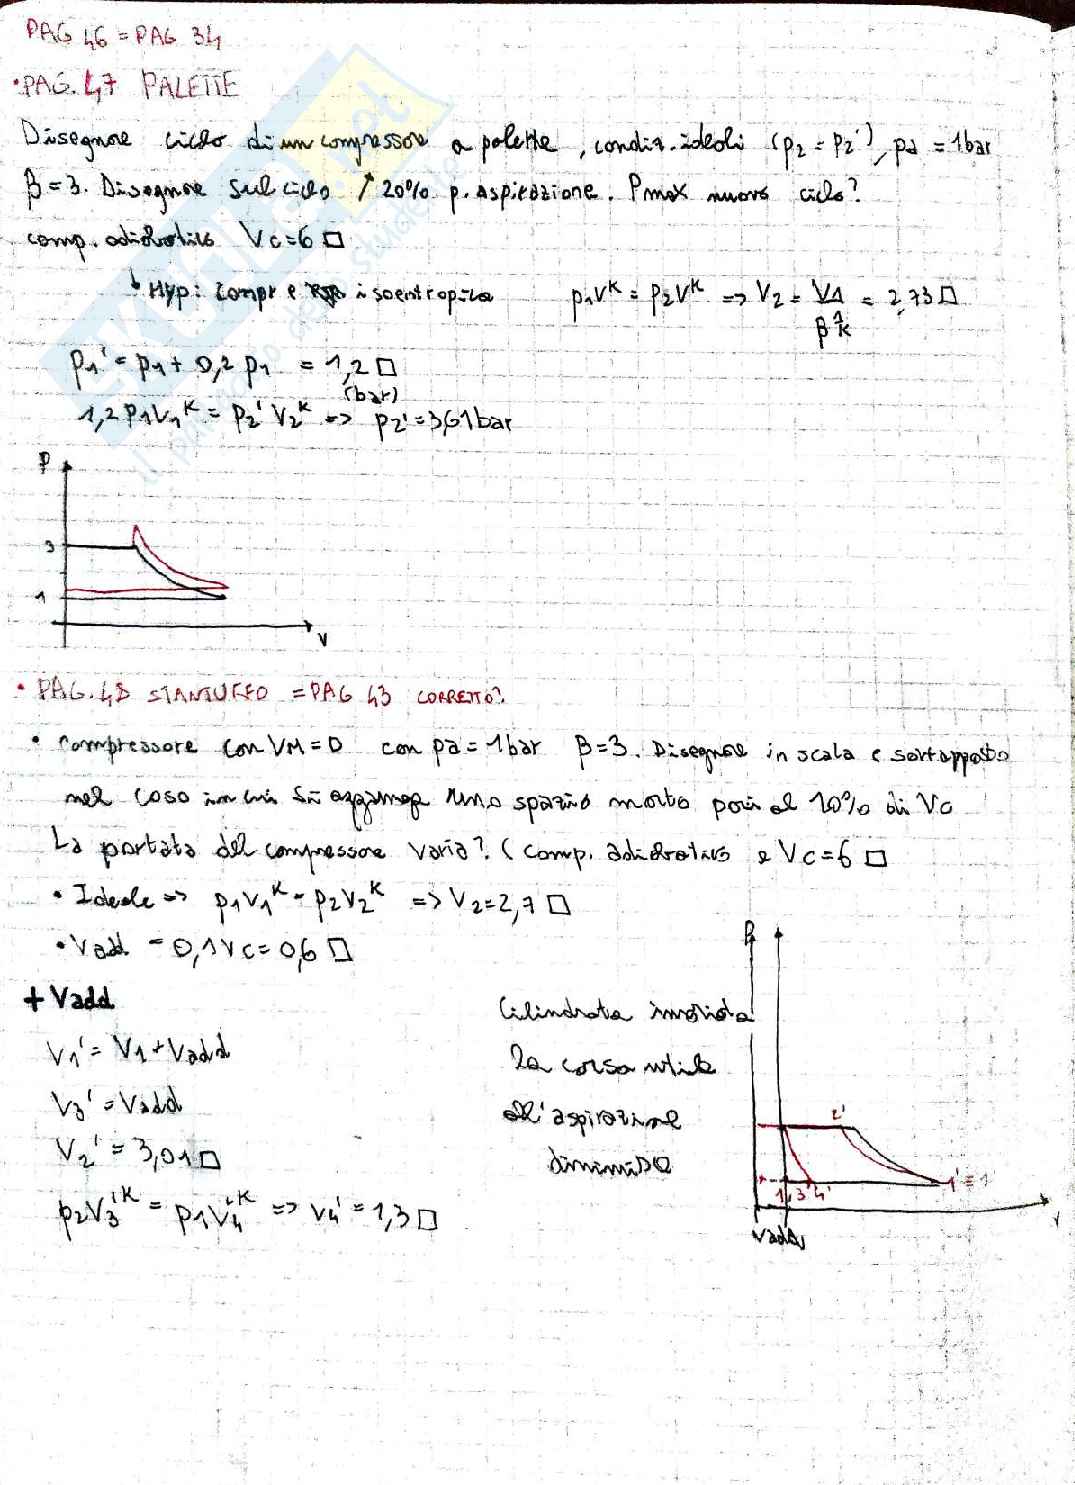 PAG 46 = PAG 34
• PAG. 47 PALETTE
Disegnare ciclo di un compressore a palette, condiz. ideali (p2 = p2'), pa = 1bar
β = 3. Disegnare sul ciclo ↑ 20% p. aspirazione. Pmax nuovo ciclo?
comp. adiabatico Vc = 6 □
↳ Hyp: compr e isoentropica p1V^K = p2V^K => V2 = V1/β^(1/K) = 2,73 □
p1' = p1 + 0,2 p1 = 1,2 □
(bar)
1,2 P1V1^K = P2' V2^K => p2' = 3,61 bar
P
3
1
V
• PAG. 48 STANTUFFO = PAG 43 CORRETTO?
• Compressore con VM = 0 con pa = 1 bar β = 3. Disegnare in scala e sovrapposto
nel caso in cui si aggiunga uno spazio morto pari al 10% di Vc
La portata del compressore varia? (comp. adiabatico e Vc = 6 □
• Ideale => p1V1^K = p2V2^K => V2 = 2,7 □
• Vadd = 0,1Vc = 0,6 □
+ Vadd
Cilindrata invariata
V1' = V1 + Vadd
la corsa utile
V3' = Vadd
all'aspirazione
V2' = 3,01 □
diminuisce
p2V3'^K = p1V4'^K => V4' = 1,3 □
2'
1'=1
1,3' 4'
Vadd
V